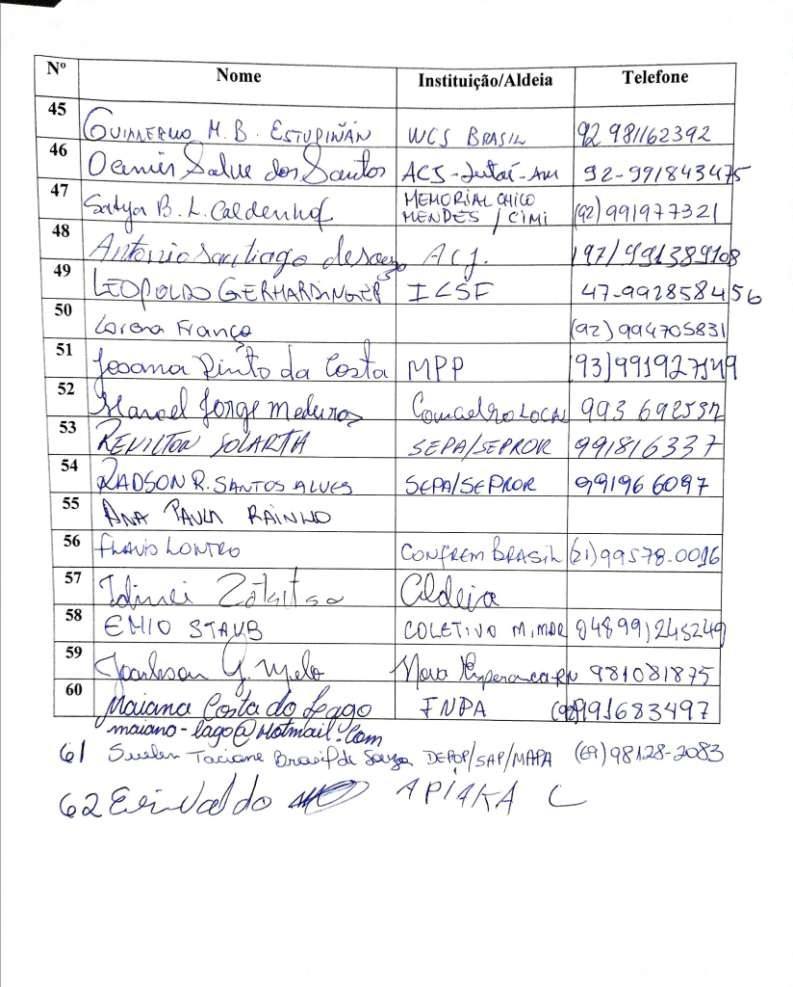 Nº Nome Instituição/Aldeia Telefone
45 GUILLERMO M. B. ESTUPIÑÁN WCS BRASIL 92 981162392
46 Salve dos Santos ACJ-Jutaí-Am 92-991843475
47 Satya B. L. Caldenhof MEMORIAL CHICO MENDES / CIMI (92) 991977321
48 Antonio Santiago de souza ACJ. (97) 991389108
49 LEOPOLDO GERHARDINGER ICSF 47-992858456
50 Lorena França (92) 994705831
51 Josana Pinto da Costa MPP (93)
52 Manoel Jorge Medeiros LOCAL 993
53 SEPA/SEPROR 991816337
54 RADSON R. SANTOS ALVES SEPA/SEPROR 991966097
55 ANA PAULA RAINHO
56 FLAVIO LONTRO CONFREM BRASIL (21) 99578-0016
57 Aldeia
58 EMIO STAUB COLETIVO M.MAR
59 G. Melo Nova Esperança 981081875
60 Maiana Costa do Lago INPA (92) 991683497
maiano-lago@Hotmail.com
61 Suelen Taciane Brasil de Souza DEPOP/SAP/MAPA 98128-2083
62 APIAKA